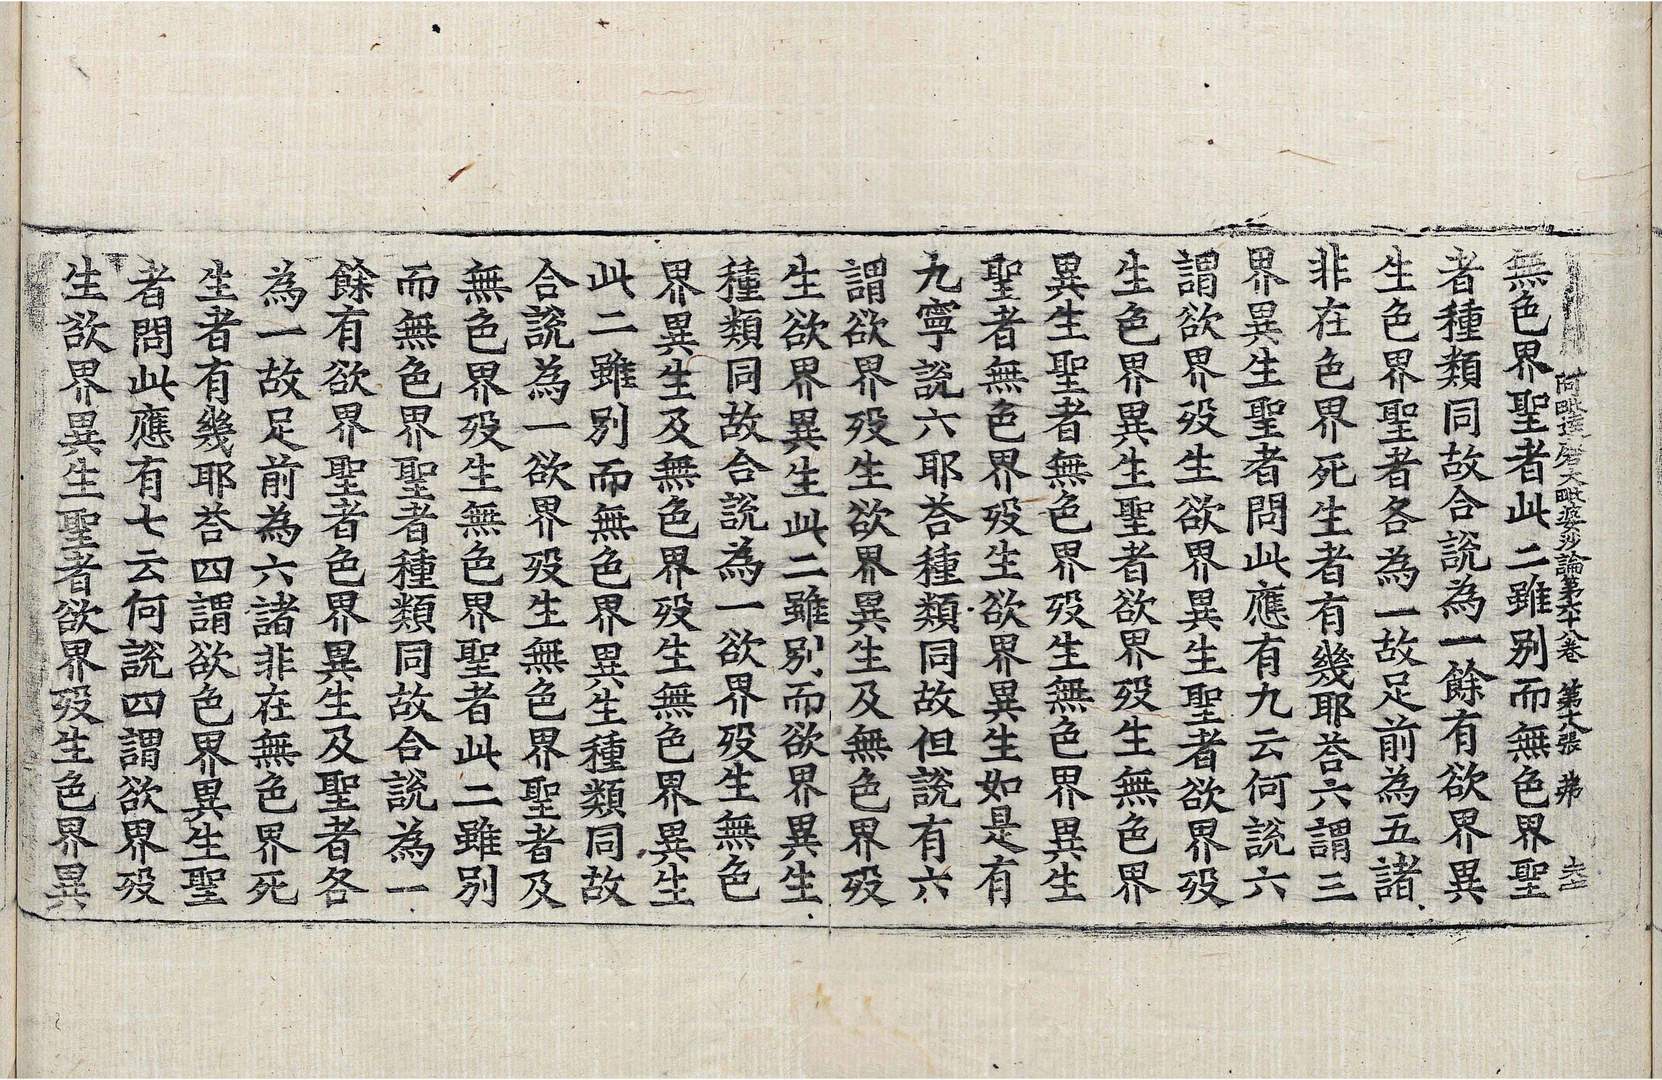 阿毗達磨大毗婆沙論第六十八卷　第十八張　弗
無色界聖者此二雖別而無色界聖
者種類同故合說為一餘有欲界異
生色界聖者各為一故足前為五諸
非在色界死生者有幾耶荅六謂三
界異生聖者問此應有九云何說六
謂欲界歿生欲界異生聖者欲界歿
生色界異生聖者欲界歿生無色界
異生聖者無色界歿生無色界異生
聖者無色界歿生欲界異生如是有
九寧說六耶荅種類同故但說有六
謂欲界歿生欲界異生及無色界歿
生欲界異生此二雖別而欲界異生
種類同故合說為一欲界歿生無色
界異生及無色界歿生無色界異生
此二雖別而無色界異生種類同故
合說為一欲界歿生無色界聖者及
無色界歿生無色界聖者此二雖別
而無色界聖者種類同故合說為一
餘有欲界聖者色界異生及聖者各
為一故足前為六諸非在無色界死
生者有幾耶荅四謂欲色界異生聖
者問此應有七云何說四謂欲界歿
生欲界異生聖者欲界歿生色界異